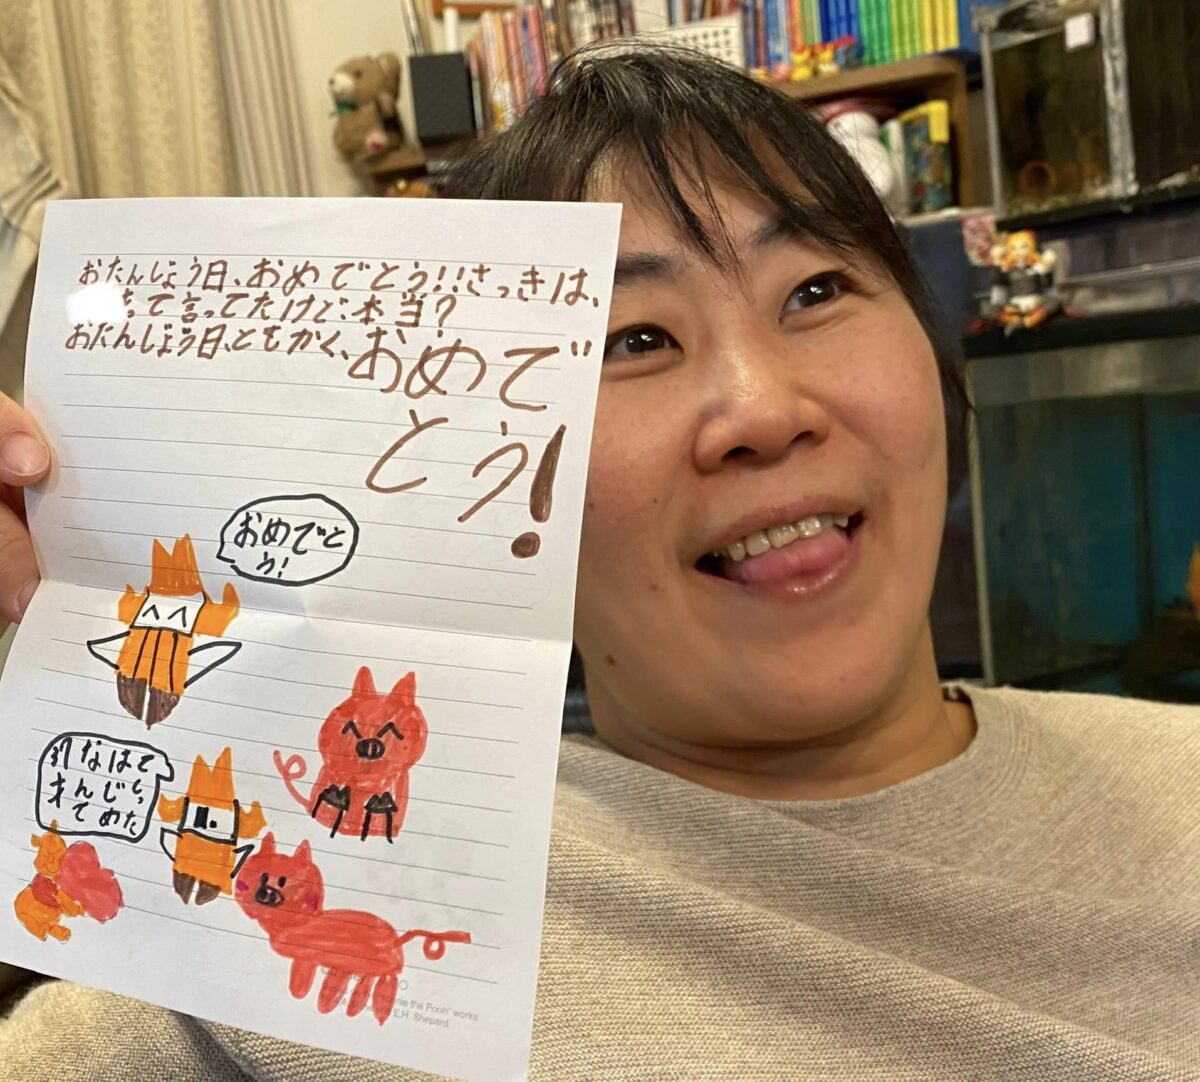 おたんじょう日、おめでとう!!さっきは、
って言ってたけど、本当?
おたんじょう日、ともかく、おめで
とう!
おめでと
う!
なはて
んじら
てめた
the Pooh" works
E.H. Shepard.